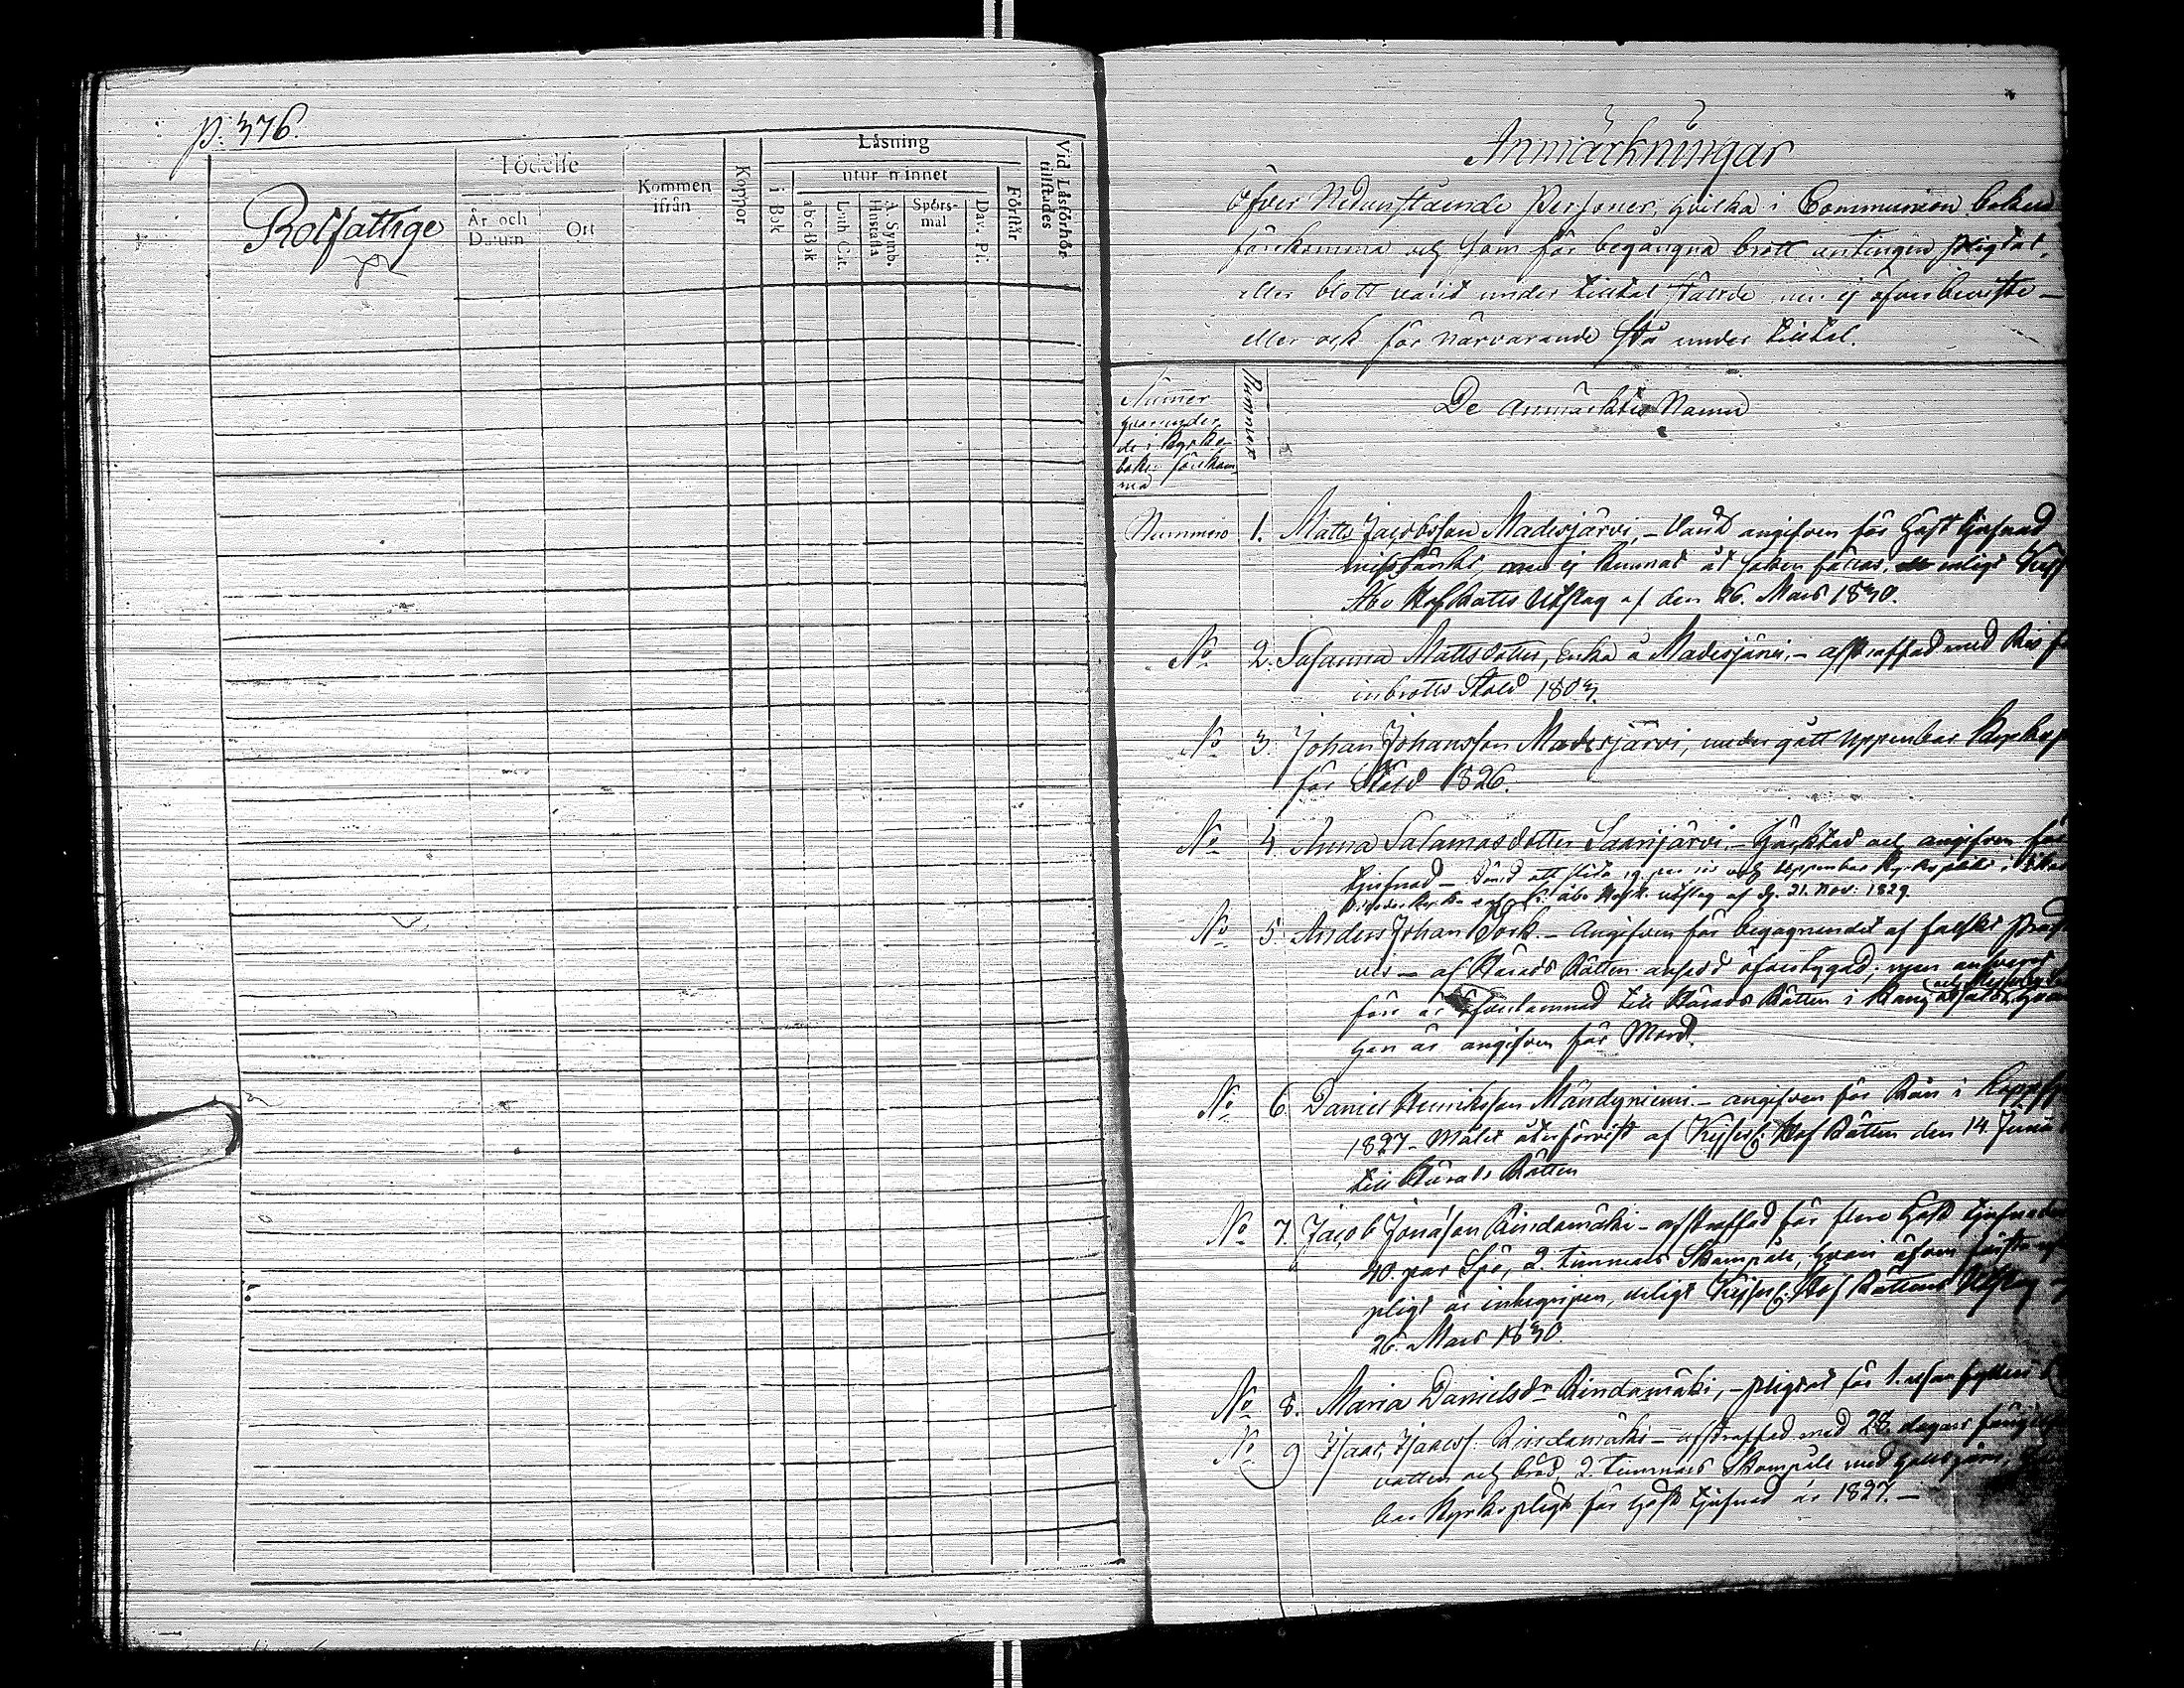 p. 376.
Rotfattige
Födelse
År och Datum
Ort
Kommen ifrån
Koppor
Läsning
i Bok
utur minnet
abc Bok
Luth. Cat.
A. Symb.
Hustafla
Spörsmål
Dav. Ps.
Förstår
Vid Läsförhör tillstädes
Anmärkningar
öfver Nedanstående Personer, hvilka i Communion boken
förekomma och som för begångna brott antingen pligtat,
eller blott varit under tilltal stälde men ej öfverbeviste –
eller ock för närvarande stå under tilltal.
Numer
hvarunder
de i Kyrko-
boken förekom-
ma
Nummer
De anmärktes Namn
Nummero 1. Matts Jacobsson Madesjärvi, – Varit angifven för Häst tjufnad
misstänkt men ej kunnat åt saken fällas, enligt
Åbo HofRätts Utslag af den 26. Mars 1830.
No 2. Susanna Mattsdotter, Enka å Madesjärvi, – afstraffad med Ris
inbrotts Stöld 1803.
No 3. Johan Johansson Madesjärvi, undergått uppenbar Kyrko
för Stöld 1826.
No 4. Anna Salamosdotter Saarijärvi, – Häcktad och angifven för
tjufnad – Dömd att slita 19 par ris och uppenbar Kyrkoplikt i
Åbo HofR. utslag af d. 21. Nov: 1829.
No 5. Anders Johan Pork – Angifven för begagnandet af falskt
af Härads Rätten ansedd öfvertygad, men
före är öfverlemnad till Härads Rätten i
han är angifven för Mord.
No 6. Daniel Henriksson Mändyniemi – angifven för Rån i
1827 – Målet återförvist af Kejserl: Hof Rätten den 14. Junii
till Härads Rätten
No 7. Jacob Jonasson Rindamäki – afstraffad för flere Häst tjufnader
40. par Spö, 2. timmars Skampåle, hvari äfven
pligt är inbegripen, enligt Kejserl: Hof Rättens Utslag
26. Mars 1830.
No 8. Maria Danielsdr Rindamäki, – pligtat för 1. resan fylleri
No 9 Isaac Isaacss: Rindamäki – afstraffad med 28. dagars fängelse
vatten och bröd, 2. timmars Skampåle med halsjärn,
bar Kyrkopligt för Häst tjufnad år 1827. –